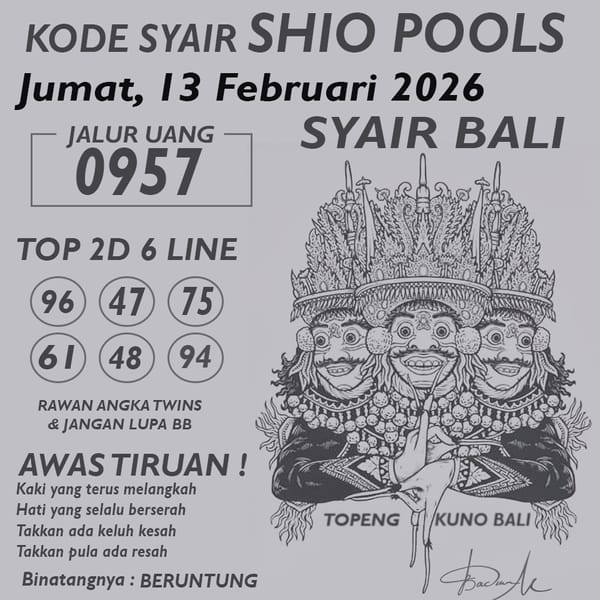 KODE SYAIR SHIO POOLS
Jumat, 13 Februari 2026
SYAIR BALI
JALUR UANG
0957
TOP 2D 6 LINE
96 47 75
61 48 94
RAWAN ANGKA TWINS
& JANGAN LUPA BB
AWAS TIRUAN !
Kaki yang terus melangkah
Hati yang selalu berserah
Takkan ada keluh kesah
Takkan pula ada resah
Binatangnya : BERUNTUNG
TOPENG KUNO BALI